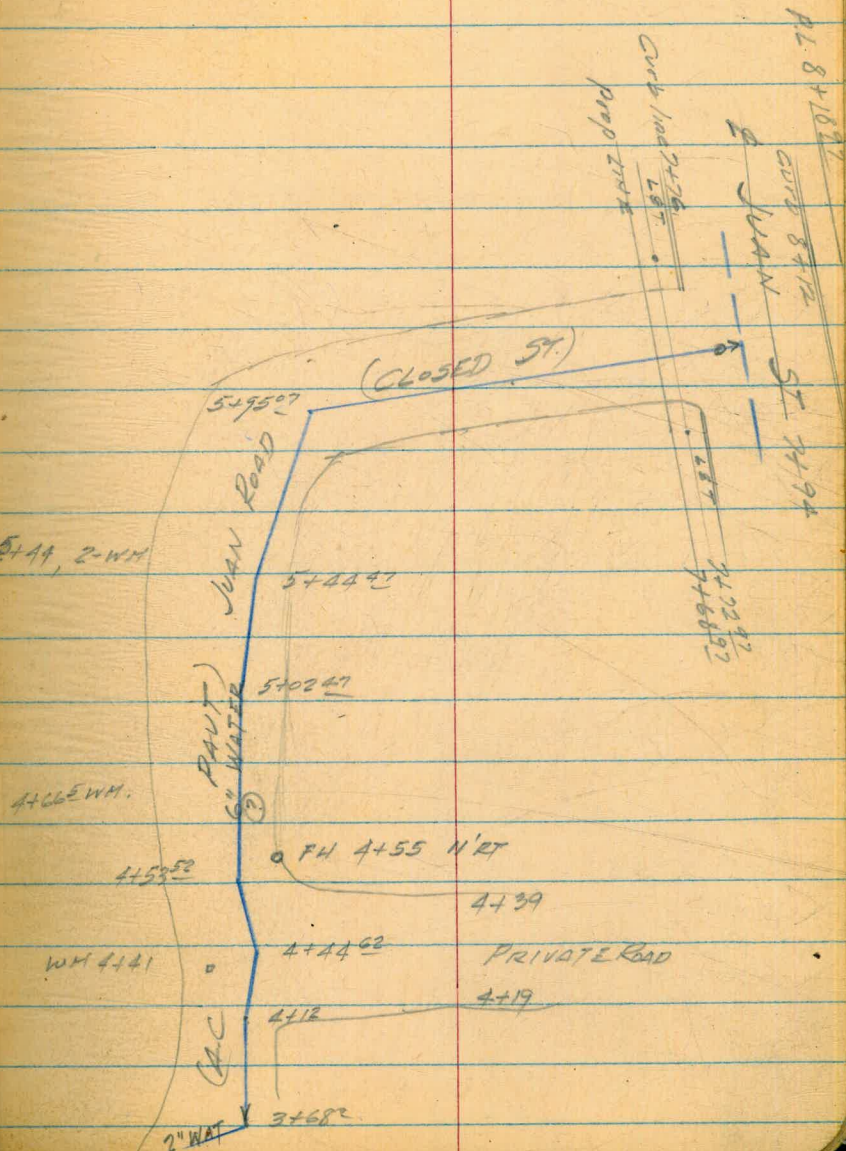 PL 8+18 97
Curb 8+12
℄ JUAN ST 7+94
Curb line 7+76
L&T
Prop LINE
(CLOSED ST.)
5+95 07
JUAN ROAD
L&T
7+72 97
7+68 97
5+44, 2-WM
5+44 47
5+02 47
6" WATER
(?)
(A.C. PAVT)
4+66 5 WM.
FH 4+55 11'RT
4+53 52
4+39
4+44 62
PRIVATE ROAD
WM 4+41
4+19
4+12
3+68 2
2" WAT